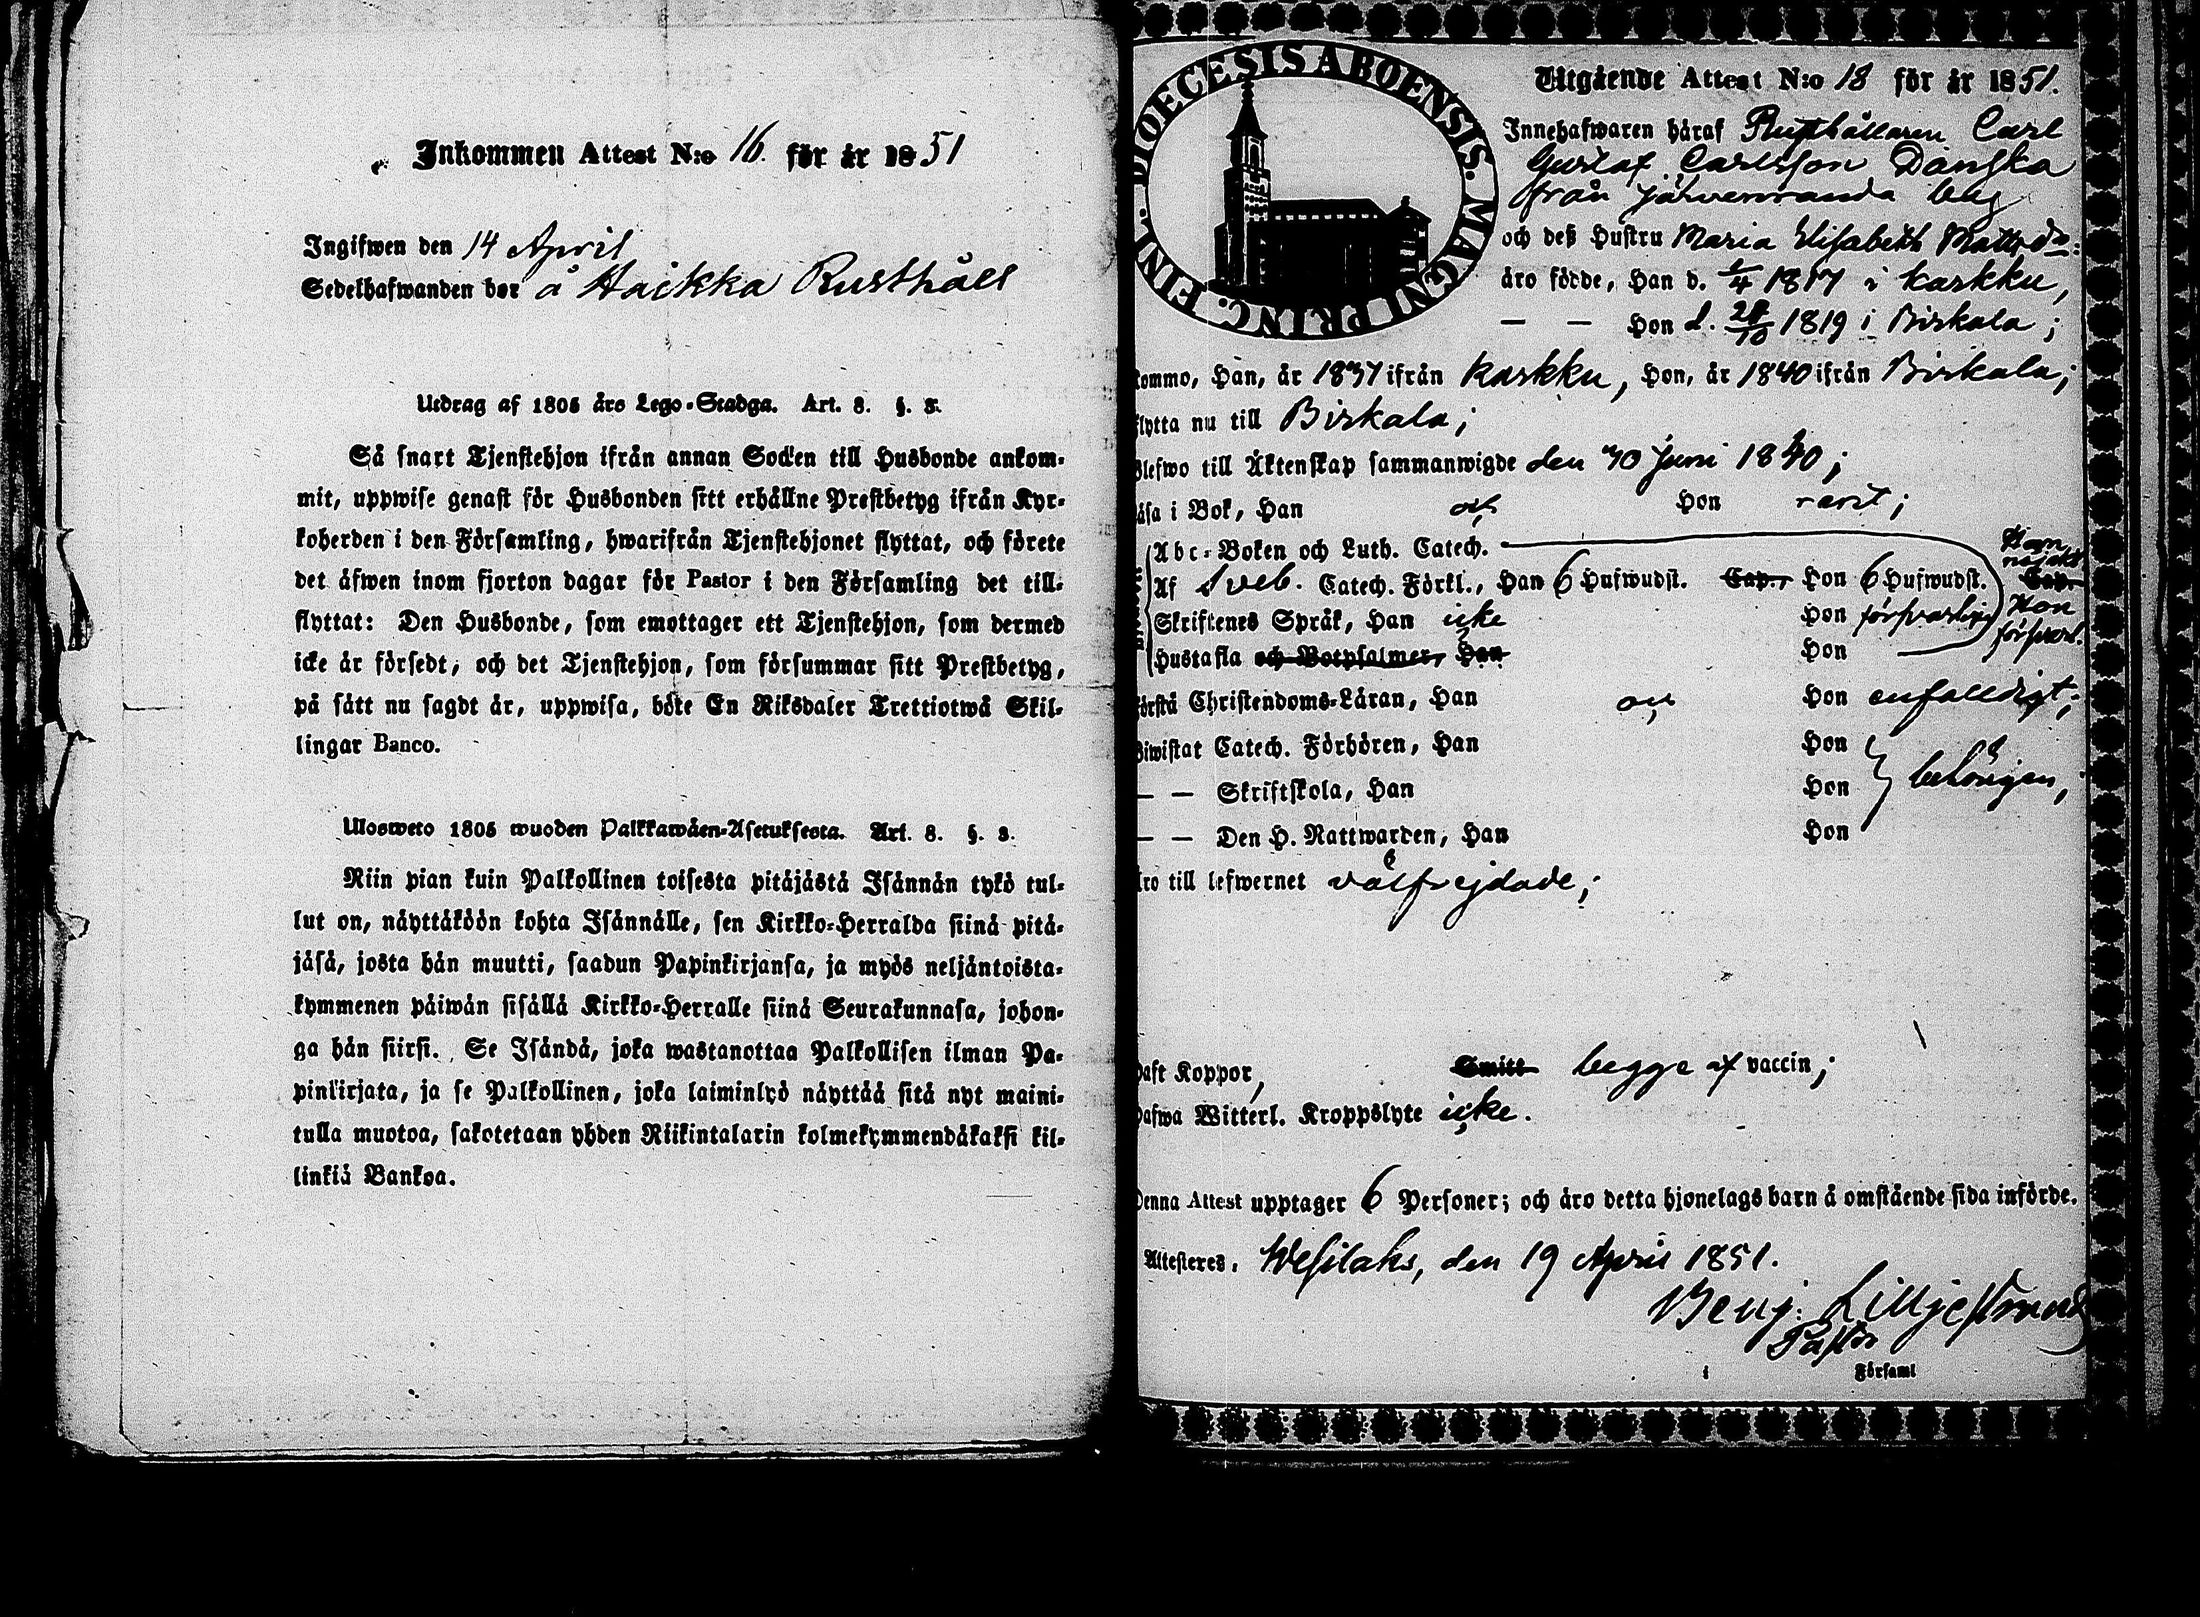 Inkommen Attest N:o 16. för år 1851
Ingifwen den 14 April
Sedelhafwanden bor å Haikka Rusthåll
Utdrag af 1805 års Lego-Stadga. Art. 8. §. 3.
Så snart Tjenstehjon ifrån annan Socken till Husbonde ankom-
mit, uppwise genast för Husbonden sitt erhållne Prestbetyg ifrån Kyr-
koherden i den Församling, hwarifrån Tjenstehjonet flyttat, och förete
det äfwen inom fjorton dagar för Pastor i den Församling det till-
flyttat: Den Husbonde, som emottager ett Tjenstehjon, som dermed
icke är försedt, och det Tjenstehjon, som försummar sitt Prestbetyg,
på sätt nu sagdt är, uppwisa, böte En Riksdaler Trettiotwå Skil-
lingar Banco.
Ulosweto 1805 wuoden Palkkawäen-Asetuksesta. Art. 8. §. 3.
Niin pian kuin Palkollinen toisesta pitäjästä Isännän tykö tul-
lut on, näyttäköön kohta Isännälle, sen Kirkko-Herralda siinä pitä-
jäsä, josta hän muutti, saadun Papinkirjansa, ja myös neljäntoista-
kymmenen päiwän sisällä Kirkko-Herralle siinä Seurakunnasa, johon-
ga hän siirsi. Se Isändä, joka wastanottaa Palkollisen ilman Pa-
pinkirjata, ja se Palkollinen, joka laiminlyö näyttää sitä nyt maini-
tulla muotoa, sakotetaan yhden Riikintalarin kolmekymmendäkaksi kil-
linkiä Bankoa.
FINL. DIOECESIS ABOENSIS. MAGNI PRINC.
Utgående Attest N:o 18 för år 1851.
Innehafwaren häraf Rusthållaren Carl
Gustaf Carlsson Danska
från Järvenranda by
och deß Hustru Maria Elisabeth Mattsdr:
äro födde, Han d. 1817 i Karkku,
— — Hon d. 1819 i Birkala;
kommo, Han, år 1837 ifrån Karkku, Hon, år 1840 ifrån Birkala;
flytta nu till Birkala;
Blefwo till Äktenskap sammanwigde den 30 Juni 1840;
läsa i Bok, Han och Hon rent;
Abc-Boken och Luth. Catech.
Af Sveb. Catech. Förkl., Han 6 Hufwudst. Cap., Hon 6 Hufwudst. Cap.
Skriftenes Språk, Han icke Hon försvarligt
Hon försvarl.
Hustafla och Botpsalmer, Han Hon
förstå Christendoms-Läran, Han och Hon enfalldigt;
Biwistat Catech. Förhören, Han Hon
— — Skriftskola, Han Hon behörigen;
— — Den H. Nattwarden, Han Hon
äro till lefwernet välfrejdade;
Haft Koppor, Smitt begge af vaccin;
Hafwa Witterl. Kroppslyte icke.
Denna Attest upptager 6 Personer; och äro detta hjonelags barn å omstående sida införde.
Attesteres. Wesilaks, den 19 April 1851.
Benj: Lilljestrand
Pastor
i Församl